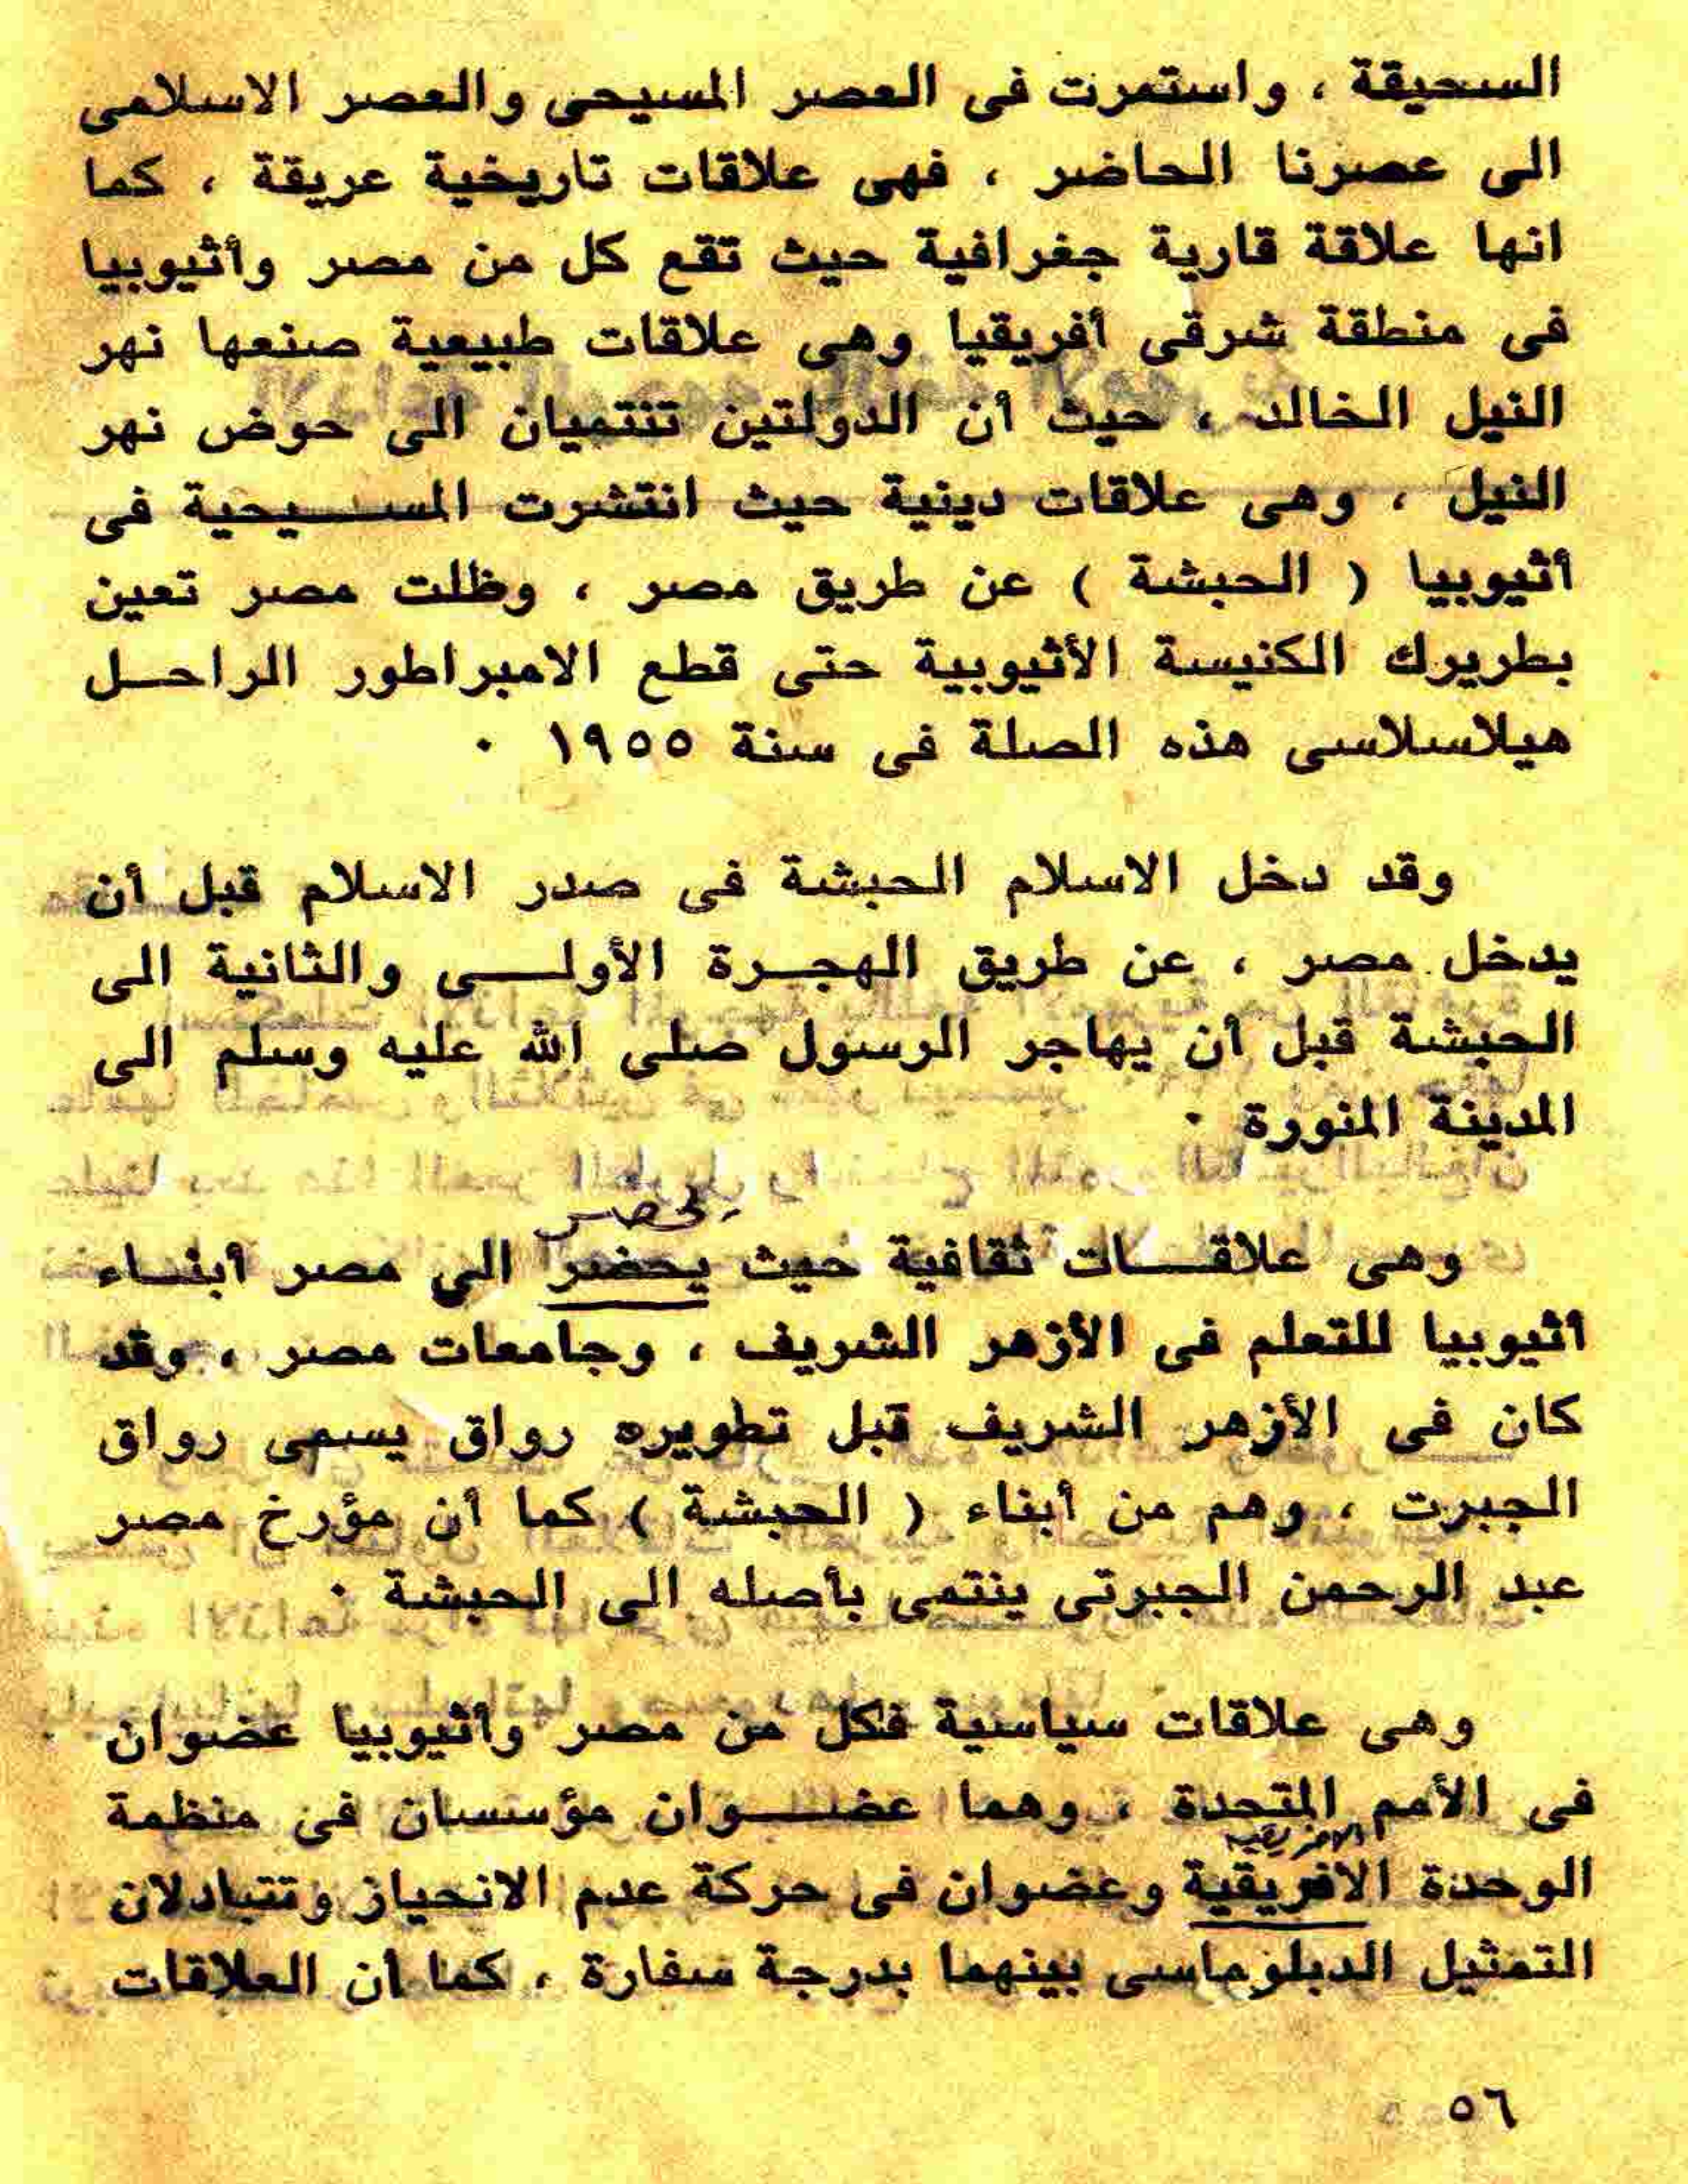 السحيقة ، واستمرت فى العصر المسيحى والعصر الاسلامى
الى عصرنا الحاضر ، فهى علاقات تاريخية عريقة ، كما
انها علاقة قارية جغرافية حيث تقع كل من مصر وأثيوبيا
فى منطقة شرقى أفريقيا وهى علاقات طبيعية صنعها نهر
النيل الخالد ، حيث أن الدولتين تنتميان الى حوض نهر
النيل ، وهى علاقات دينية حيث انتشرت المسـيحية فى
أثيوبيا ( الحبشة ) عن طريق مصر ، وظلت مصر تعين
بطريرك الكنيسة الأثيوبية حتى قطع الامبراطور الراحـل
هيلاسلاسى هذه الصلة فى سنة ١٩٥٥ ٠
وقد دخل الاسلام الحبشة فى صدر الاسلام قبل أن
يدخل مصر ، عن طريق الهجـرة الأولـى والثانية الى
الحبشة قبل أن يهاجر الرسول صلى الله عليه وسلم الى
المدينة المنورة ٠
يحضر
وهى علاقـات ثقافية حيث يحضر الى مصر أبنـاء
أثيوبيا للتعلم فى الأزهر الشريف ، وجامعات مصر ، وقد
كان فى الأزهر الشريف قبل تطويره رواق يسمى رواق
الجبرت ، وهم من أبناء ( الحبشة ) كما أن مؤرخ مصر
عبد الرحمن الجبرتى ينتمى بأصله الى الحبشة ٠
وهى علاقات سياسية فكل من مصر وأثيوبيا عضوان
فى الأمم المتحدة ، وهما عضـوان مؤسسان فى منظمة
الافريقية
الوحدة الافريقية وعضوان فى حركة عدم الانحياز وتتبادلان
التمثيل الدبلوماسى بينهما بدرجة سفارة ، كما أن العلاقات
٥٦